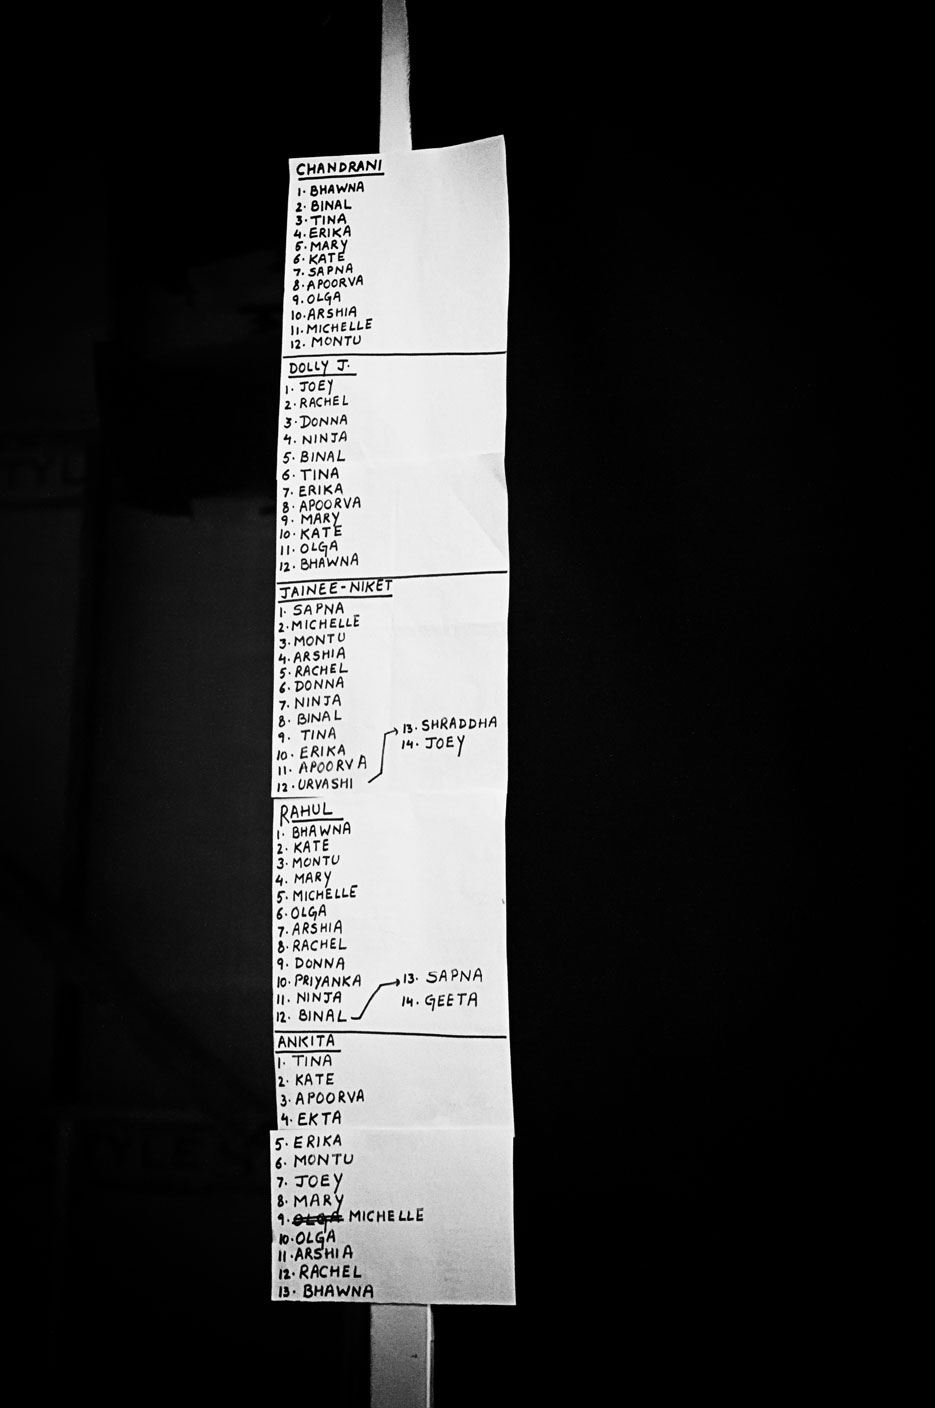 CHANDRANI
1. BHAWNA
2. BINAL
3. TINA
4. ERIKA
5. MARY
6. KATE
7. SAPNA
8. APOORVA
9. OLGA
10. ARSHIA
11. MICHELLE
12. MONTU
DOLLY J.
1. JOEY
2. RACHEL
3. DONNA
4. NINJA
5. BINAL
6. TINA
7. ERIKA
8. APOORVA
9. MARY
10. KATE
11. OLGA
12. BHAWNA
JAINEE-NIKET
1. SAPNA
2. MICHELLE
3. MONTU
4. ARSHIA
5. RACHEL
6. DONNA
7. NINJA
8. BINAL
9. TINA
10. ERIKA
11. APOORVA
12. URVASHI
13. SHRADDHA
14. JOEY
RAHUL
1. BHAWNA
2. KATE
3. MONTU
4. MARY
5. MICHELLE
6. OLGA
7. ARSHIA
8. RACHEL
9. DONNA
10. PRIYANKA
11. NINJA
12. BINAL
13. SAPNA
14. GEETA
ANKITA
1. TINA
2. KATE
3. APOORVA
4. EKTA
5. ERIKA
6. MONTU
7. JOEY
8. MARY
9. OLGA MICHELLE
10. OLGA
11. ARSHIA
12. RACHEL
13. BHAWNA